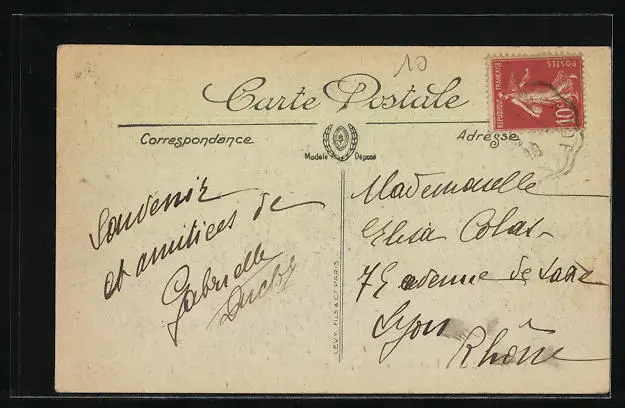 10
Carte Postale
RÉPUBLIQUE FRANÇAISE
POSTES
10c
Correspondance
Adresse
Modèle Déposé
Souvenir
et amitiées de
Gabrielle
LÉVY FILS & Cie PARIS
Mademoiselle
Colas
avenue de Saxe
Lyon
Rhône